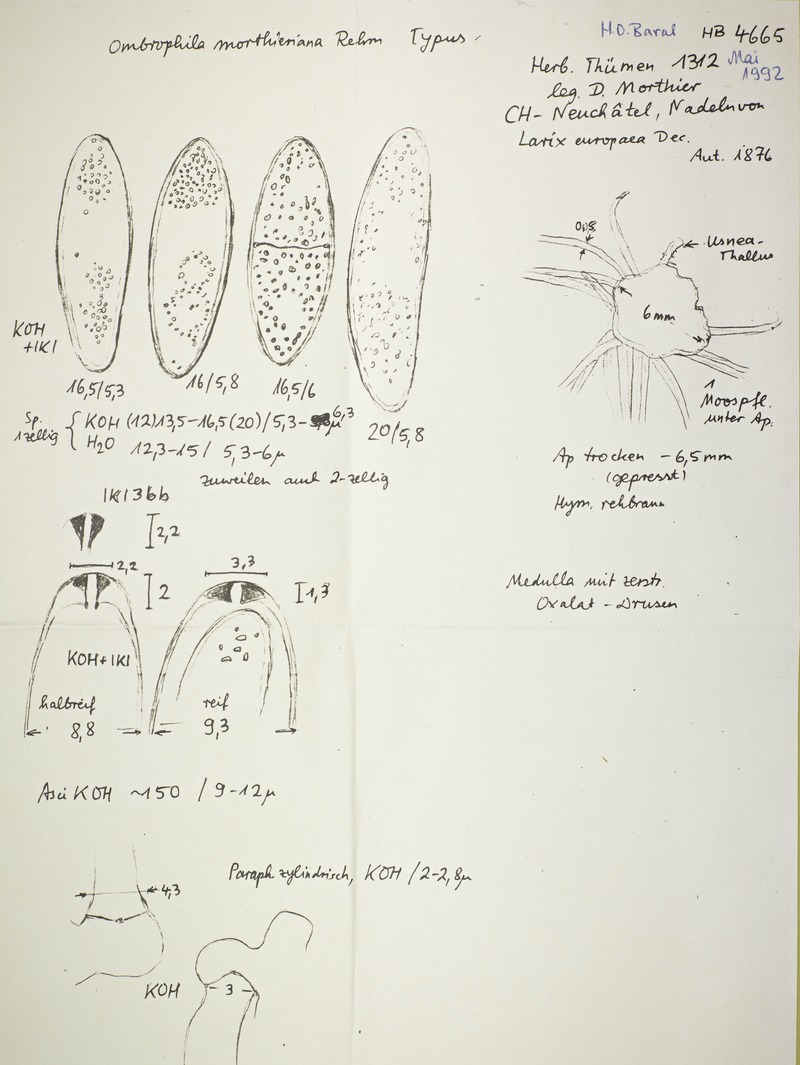 Ombrophila morthieriana Rehm Typus
H.O. Baral HB 4665
Mai
1992
Herb. Thümen 1312
leg. D. Morthier
CH- Neuchâtel, Nadeln von
Larix europaea Dec.
Aut. 1876
KOH
+IKI
16,5/5,3
16/5,8
16,5/6
20/5,8
Sp.
1zellig
KOH (12)13,5-16,5(20)/5,3-6,3 µ
H2O 12,3-15/ 5,3-6µ
zuweilen auch 2-zellig
Usnea-
Thallus
6mm
Moospfl.
unter Ap.
Ap trocken -6,5mm
(gepresst)
Hym. rehbraun
Medulla mit zerstr.
Oxalat-Drusen
IKI 3bb
2,2
2,2
2
3,3
1,3
KOH+IKI
halbreif
8,8
reif
9,3
Asci KOH ~150 / 9-12µ
4,3
Paraph zylindrisch, KOH /2-2,8µ
KOH
3